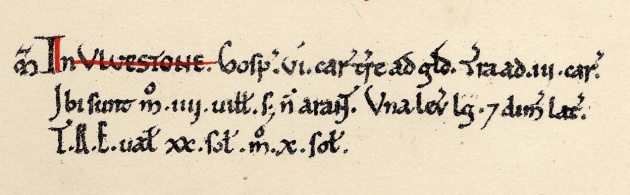 m̃ In VLVESTONE. Gosp̃. vi. car̃ tr̃e ad gl̃d. Tr̃a ad .iii. car̃.
Ibi sunt m̊. iiii. uilł. s; ñ araɲ̃. Vna lev̄ lḡ. ⁊ dim̃ lat̃.
T.R.E. uał xx. soł. m̊. x. soł.